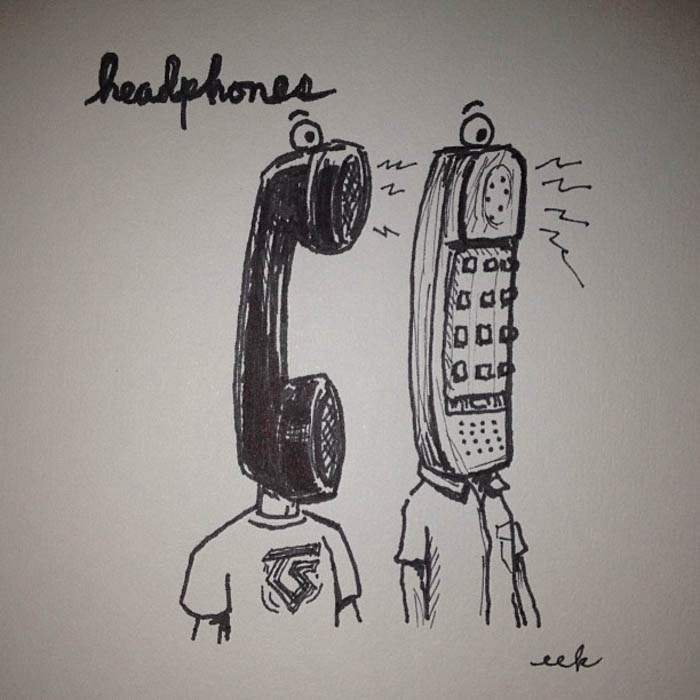 headphones
eek